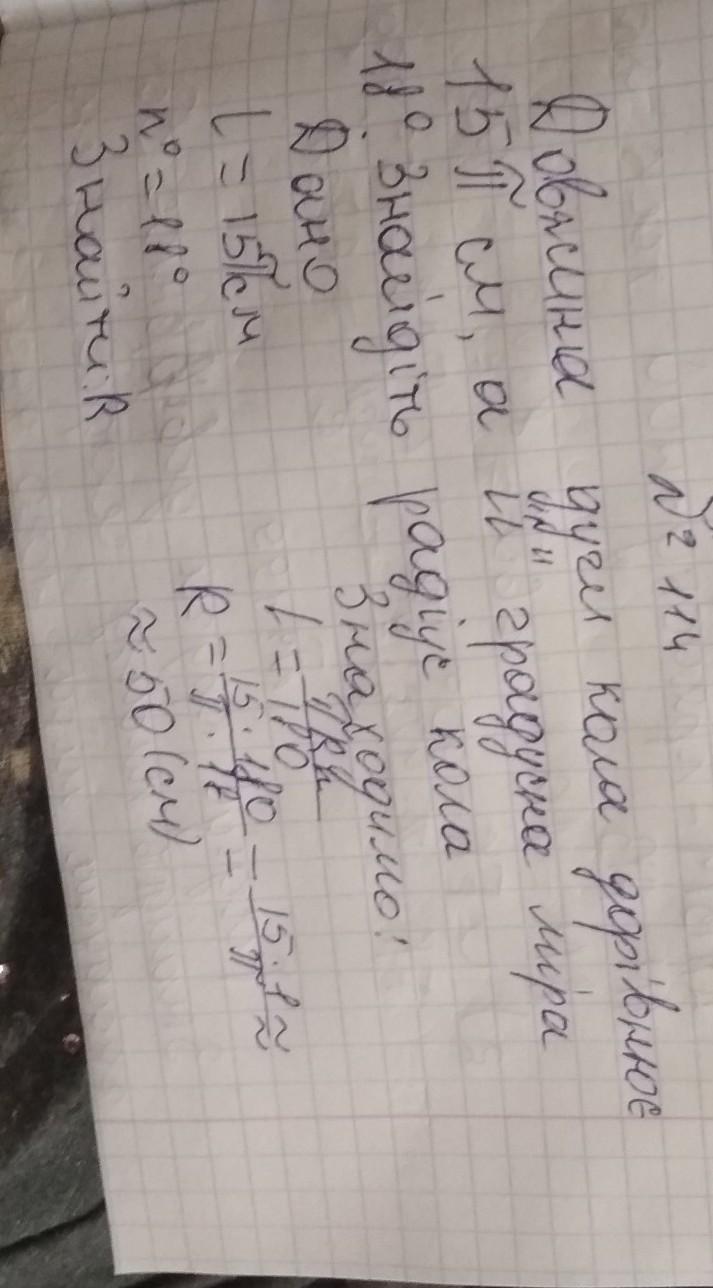 № 114
Довжина дуги кола дорівнює
15π см, а її градусна міра
18°. Знайдіть радіус кола
Дано
l = 15π см
n° = 18°
Знайти: R
Знаходимо:
l = πRn / 180
R = 15 · 180 / π · 18 = 15 · 1 / π ≈
≈ 50 (см)